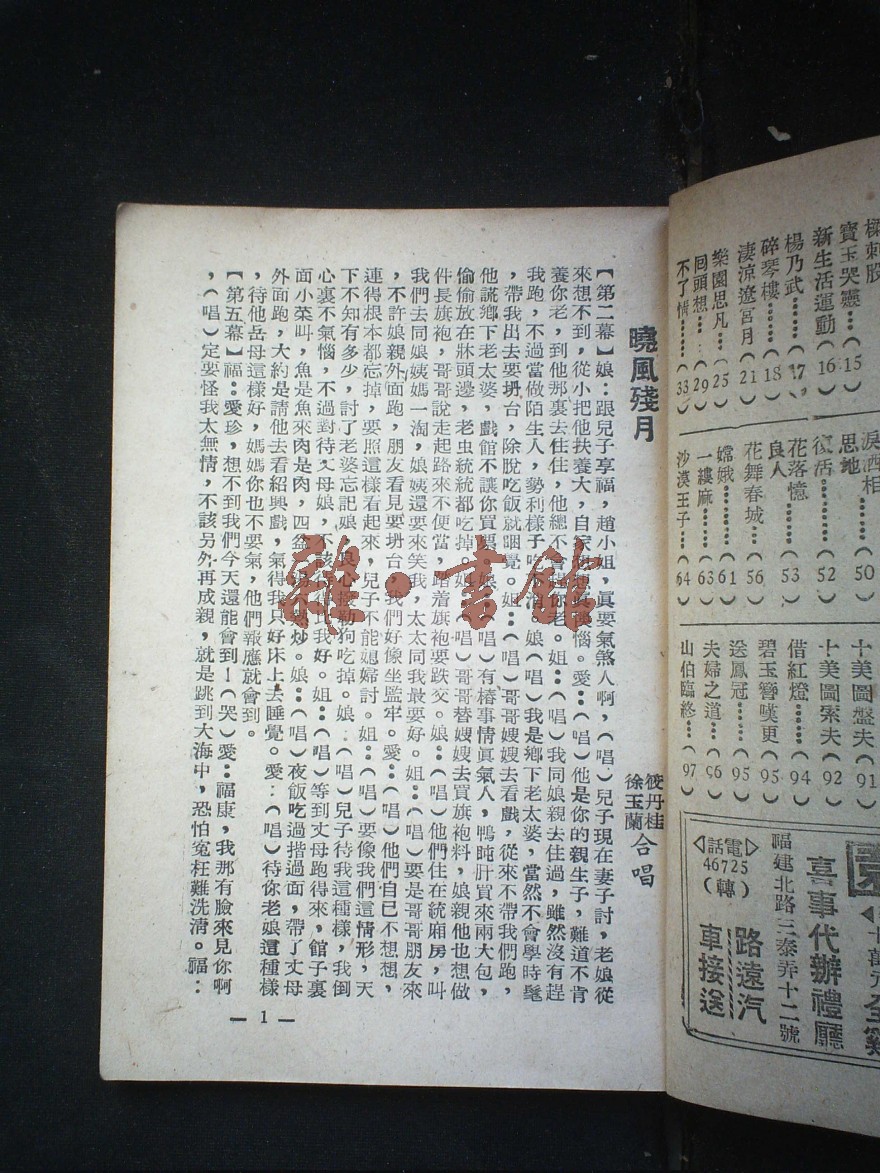 刺股
寶玉哭靈……(15)
新生活運動(16)
楊乃武……(17)
碎琴樓……(18)
淒涼遼宮月(21)
樂園思凡…(25)
囘頭想……(29)
不了情……(33)
淚洒相
思地……(50)
復活……(52)
花落憶
良人……(53)
花舞春城…(56)
嫦娥……(61)
一縷麻……(63)
沙漠王子…(64)
十美圖盤夫(91)
十美圖索夫(92)
借紅燈……(94)
碧玉簪嘆更(95)
送鳳冠……(95)
夫婦之道…(96)
山伯臨終…(97)
喜事代辦禮廳
福建北路三泰弄十二號
路遠汽
車接送
電話
46725
(轉)
曉風殘月
筱丹桂
徐玉蘭
合唱
【第二幕】娘：跟兒子享福，趙小姐，眞要氣煞人啊，(唱)兒子現在妻子討，老娘從
來想不到，從小把他扶養大，自惱。愛：(唱)他是你的親生子，難道不肯
養你老，到他那裏去住住，他總不會你老。姐：(唱)我同娘親去住過，雖然沒有趕
我跑，不過當做陌生人，勢利樣子吃不消。娘(唱)我是鄉下老太婆，當然不會學時髦
，帶我出去要坍台，除脫吃飯就睏覺。姐：(唱)哥哥嫂嫂去看戲，從來不帶我們跑，
他謊鄉下老太婆，戲館不讓你買票。娘：(唱)有椿事情眞氣人，鴨肫肝買來兩大包，
偷偷放在牀頭邊，老虫統統都吃掉。姐：(唱)哥哥替嫂嫂去買旗袍料，娘親他也想做
件長旗袍，哥哥說走起路來不便當，踏着旗袍要跌交。娘：(唱)他們住在統廂房，叫
我們去同娘姨媽一淘，娘姨還要來笑我，太太同我最要好。姐：(唱)要是哥哥朋友來
，不許娘親外面跑，朋友看見要坍台，我們好像坐監牢。愛：(唱)他們自已不想想，
連得根本都忘掉，要照這樣看起來，兒子不能媳婦討。姐：(唱)要像我們這情形，天
下不知有多少，討了老婆忘記娘，良心撥勒狗吃掉。娘：(唱)兒子待我這種樣，我倒
心裏不氣惱，不過對待丈母娘，不該待比我好。姐：(唱)等到丈母跑得來，館子裏
面小菜叫，魚是魚來肉是肉，四盆湯炒。娘：(唱)夜飯吃過揩過面，帶了丈母
外面跑，大約是請他去看紹興戲，氣得我只好床上去睡覺。愛：(唱)待你老娘這種樣
，待他岳母這樣好，媽媽你也不要氣，他們報應就會到。
【第五幕】福：愛珍，想不到我們今天還能會到！(哭)愛：福康，我那有臉來見你啊
，(唱)定要怪我太無情，不該另外再成親，就是跳到大海中，恐怕寃枉難洗清。福：
— 1 —
雜·書館